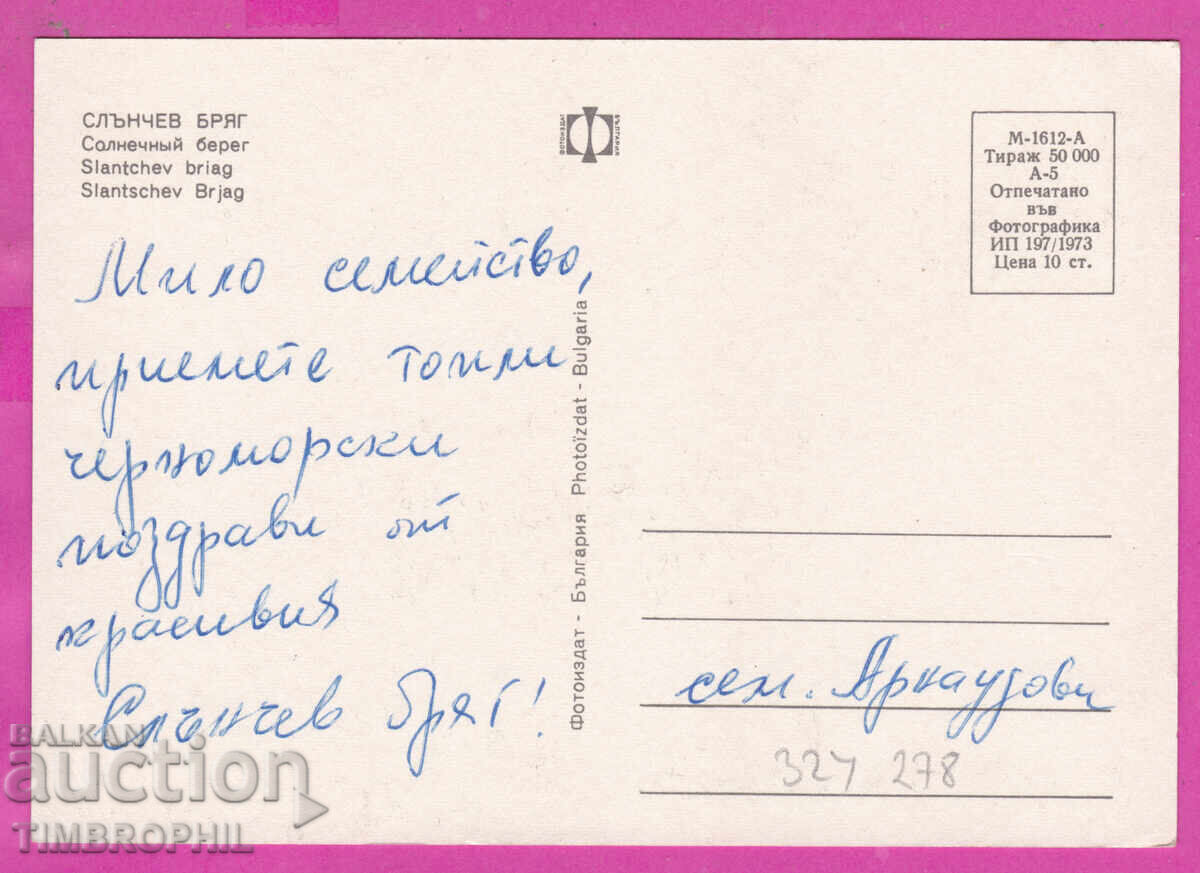 СЛЪНЧЕВ БРЯГ
Солнечный берег
Slantchev briag
Slantschev Brjag
ФОТОИЗДАТ
БЪЛГАРИЯ
М-1612-А
Тираж 50 000
А-5
Отпечатано
във
Фотографика
ИП 197/1973
Цена 10 ст.
Мило семейство,
приемете топли
черноморски
поздрави от
красивия
Слънчев бряг!
Фотоиздат - България Photoïzdat - Bulgaria
сем. Арнаудови
324 278
BALKAN
auction
TIMBROPHIL